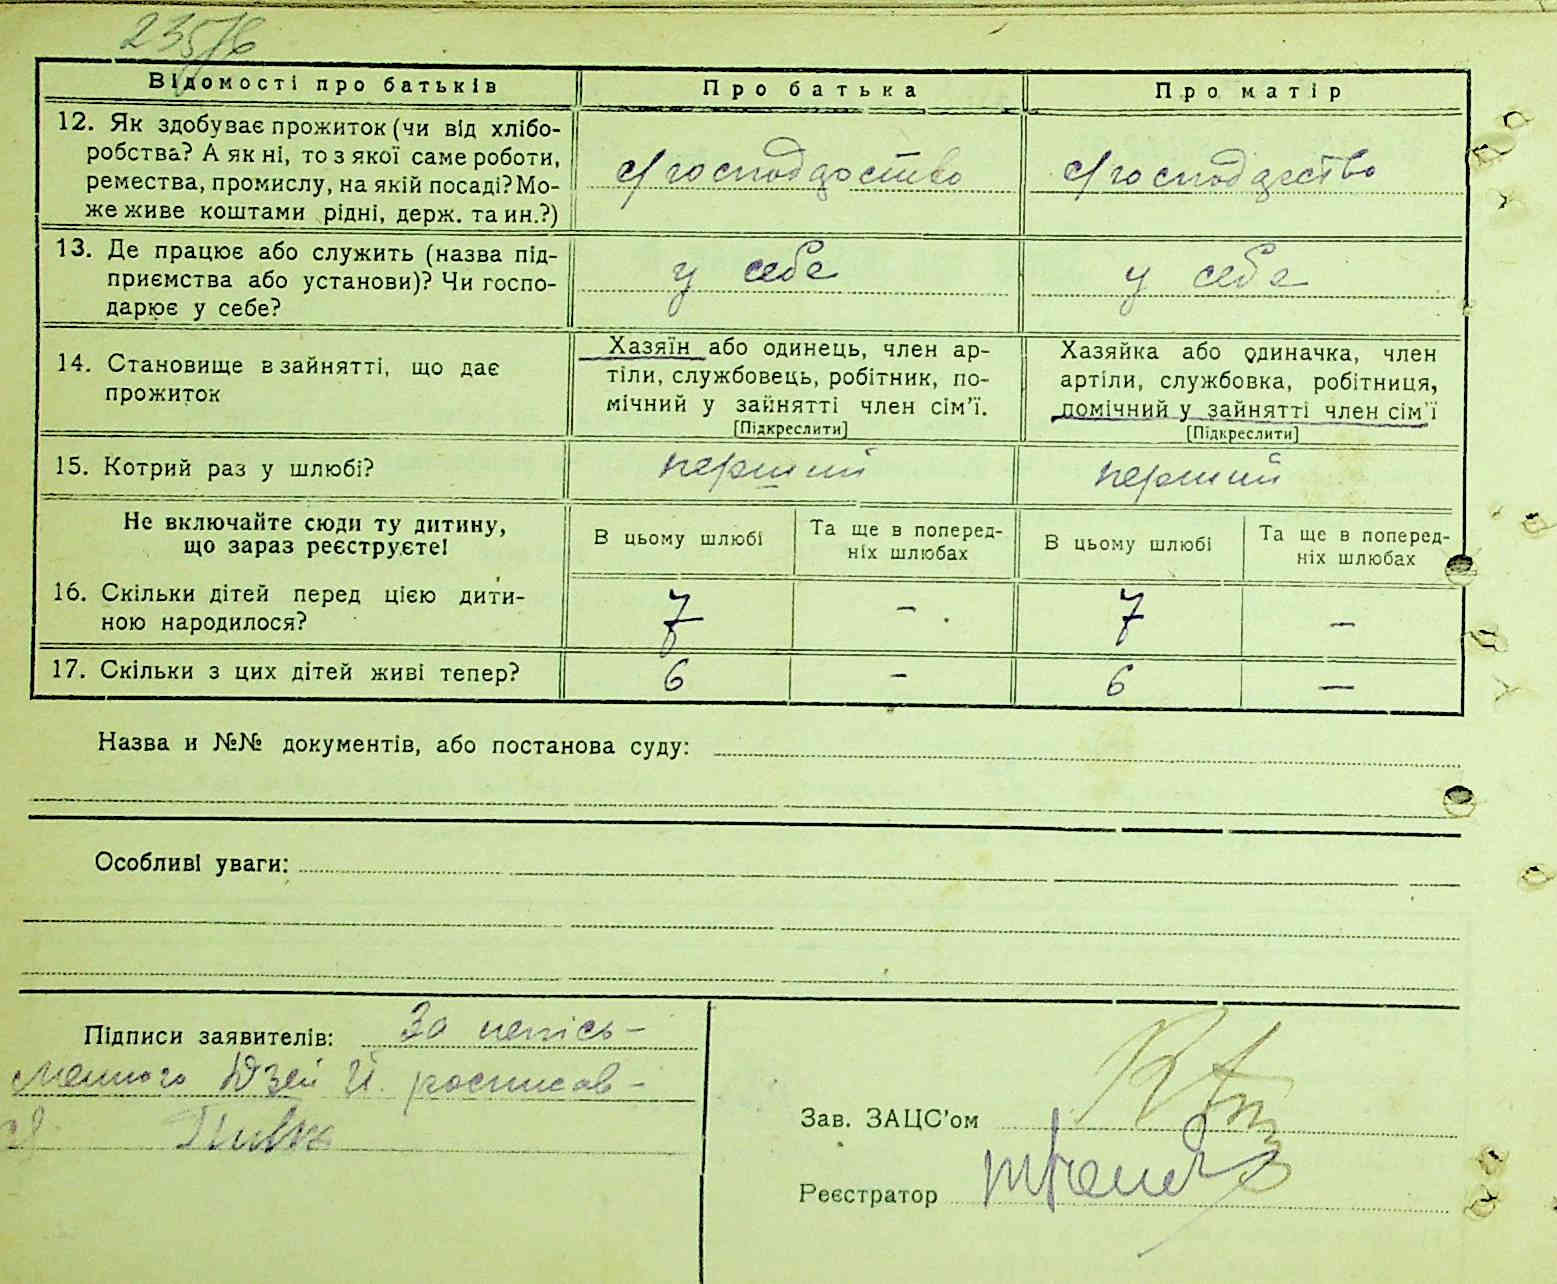 235/6
Відомості про батьків
Про батька
Про матір
12. Як здобуває прожиток (чи від хлібо-
робства? А як ні, то з якої саме роботи,
ремества, промислу, на якій посаді? Мо-
же живе коштами рідні, держ. та ин.?)
с/господарство
с/господарство
13. Де працює або служить (назва під-
приємства або установи)? Чи госпо-
дарює у себе?
у себе
у себе
14. Становище в зайнятті, що дає
прожиток
Хазяїн або одинець, член ар-
тіли, службовець, робітник, по-
мічний у зайнятті член сім’ї.
[Підкреслити]
Хазяйка або одиначка, член
артіли, службовка, робітниця,
помічний у зайнятті член сім’ї
[Підкреслити]
15. Котрий раз у шлюбі?
перший
перший
Не включайте сюди ту дитину,
що зараз реєструєте!
В цьому шлюбі
Та ще в поперед-
ніх шлюбах
В цьому шлюбі
Та ще в поперед-
ніх шлюбах
16. Скільки дітей перед цією дити-
ною народилося?
7
–
7
–
17. Скільки з цих дітей живі тепер?
6
–
6
–
Назва и №№ документів, або постанова суду:
Особливі уваги:
Підписи заявителів: За непісь-
менного Дзей И. росписав-
ся
Зав. ЗАЦС’ом
Реєстратор